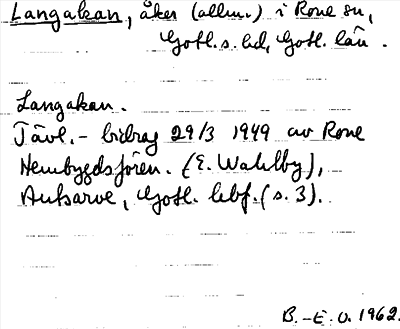 Langakan, åker (allm.) i Rone sn,
Gotl. s. hd, Gotl. län.
Langakan.
Tävl.- bidrag 29/3 1949 av Rone
Hembygdsfören. (E. Wahlby),
Autsarve, Gotl. lebf. (s. 3).
B.-E. O. 1962.